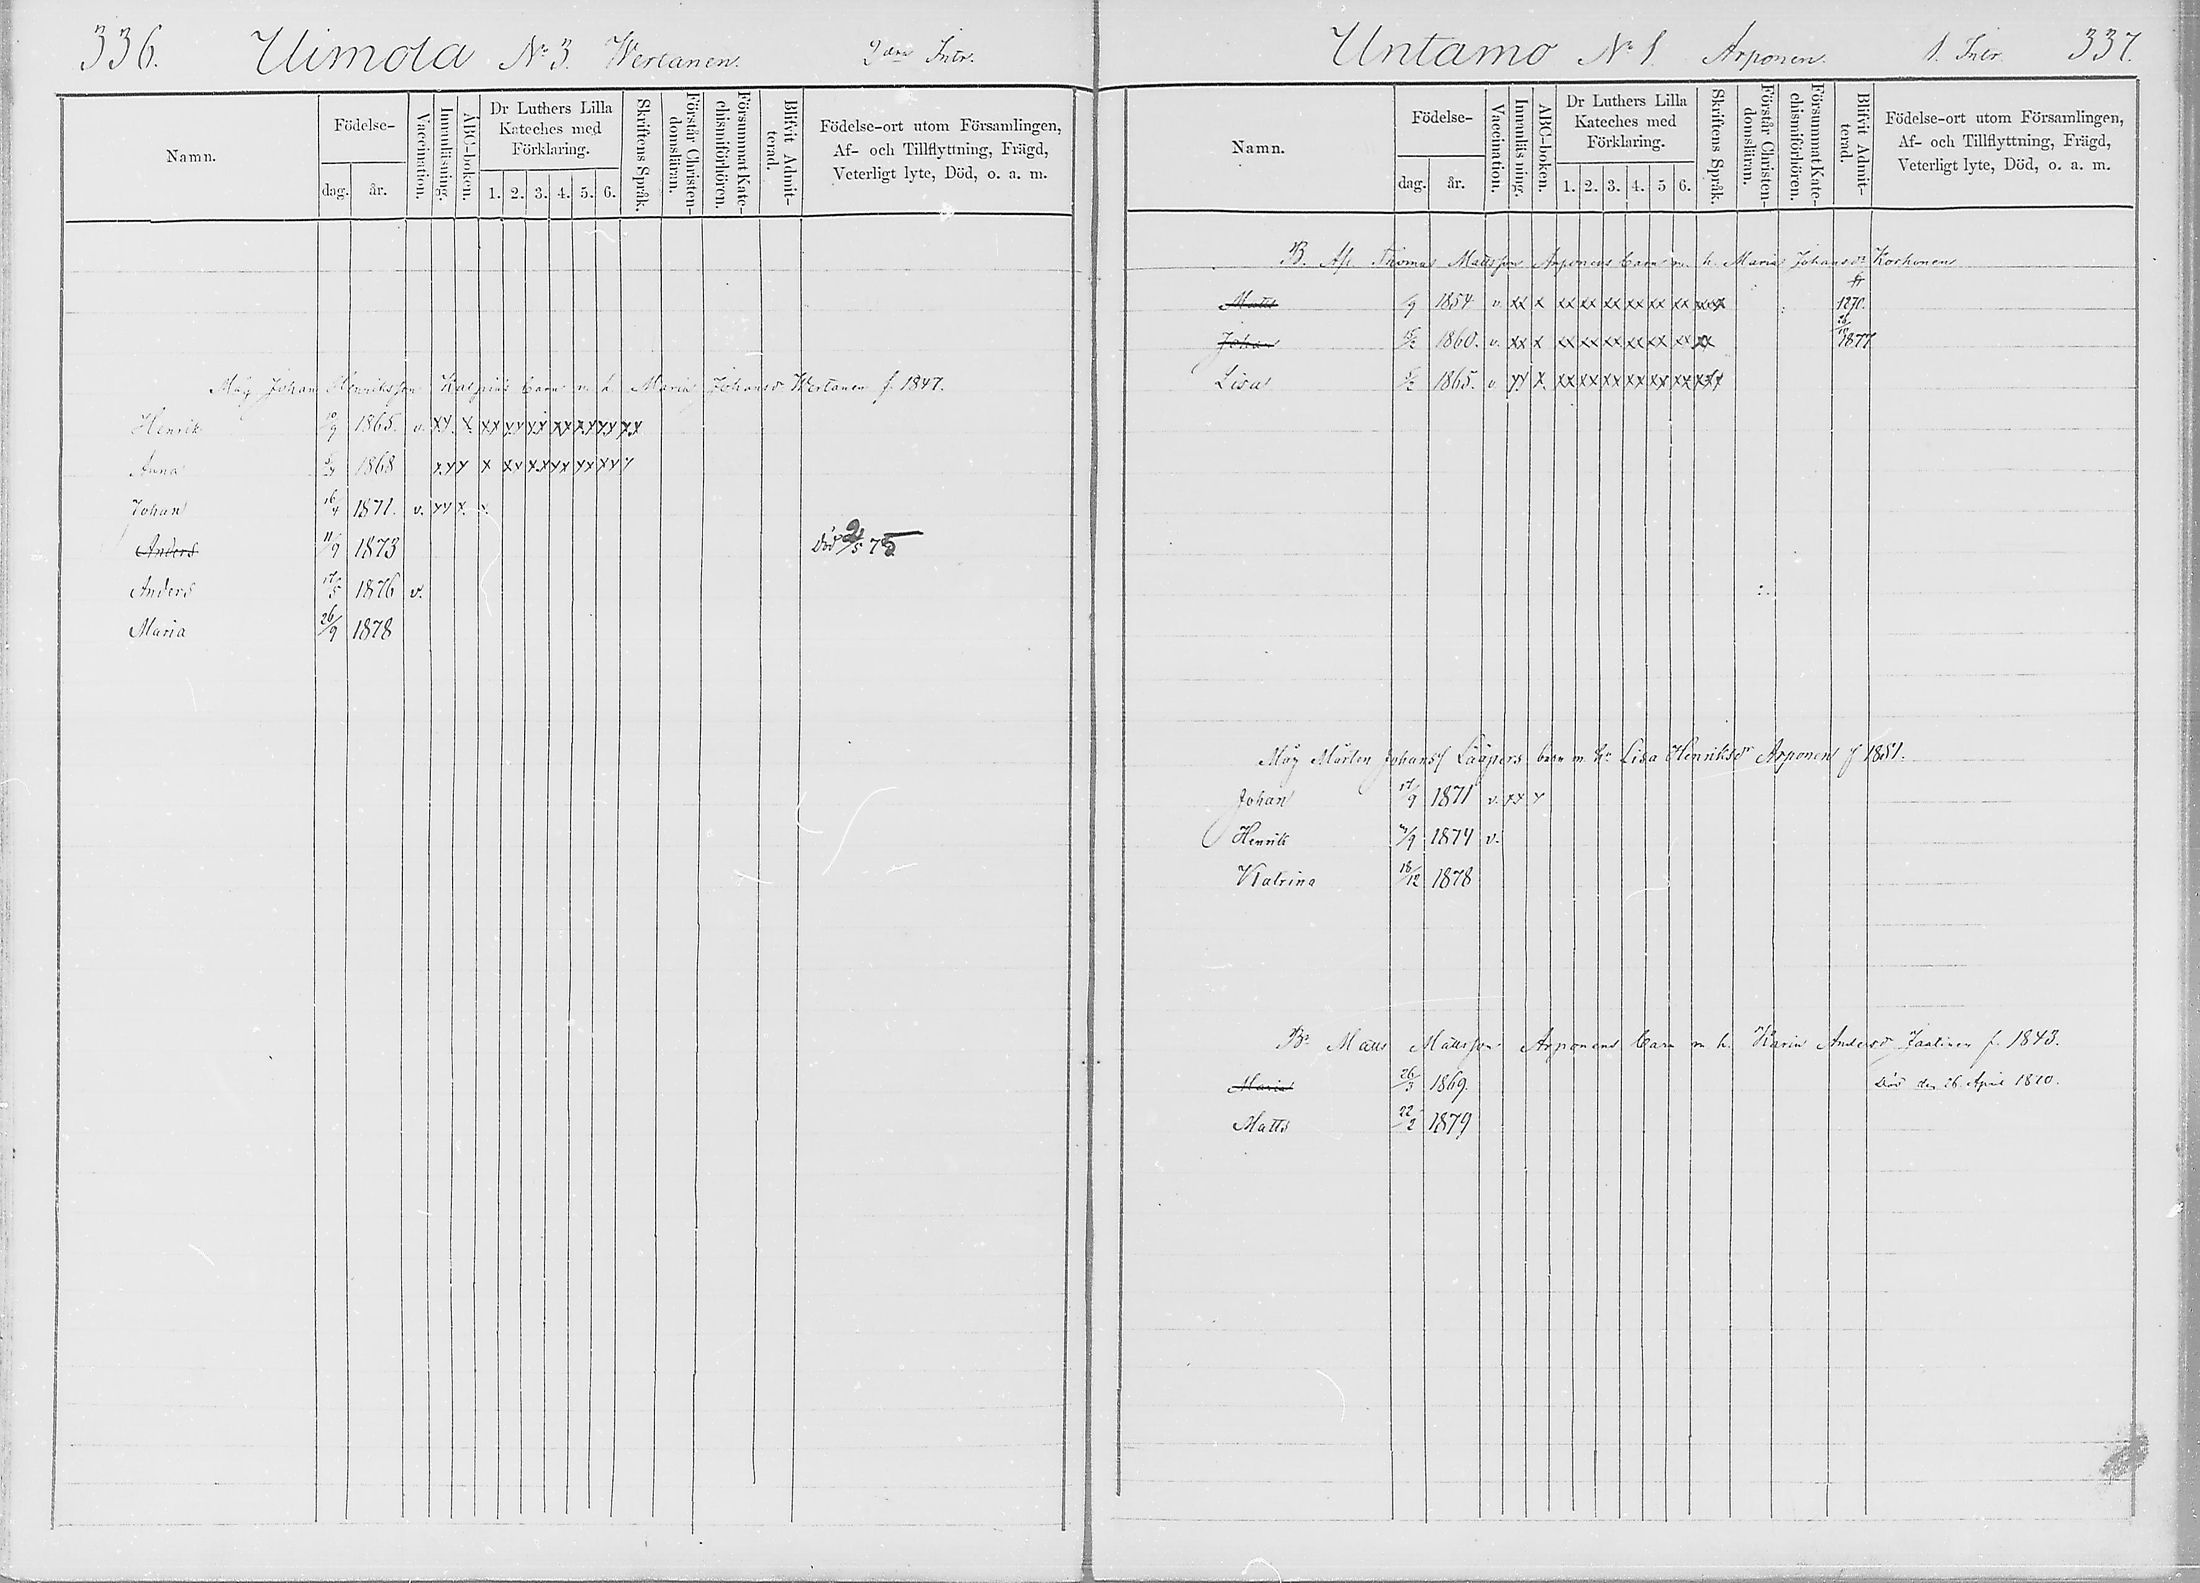 336. Uimola No 3. Wertanen. 2dra Intr.
Namn. Födelse- dag. år. Vaccination. Innanläsning. ABC-boken. Dr Luthers Lilla Kateches med Förklaring. 1. 2. 3. 4. 5. 6. Skriftens Språk. Förstår Christendomsläran. Försummat Katechismiförhören. Blifvit Admitterad. Födelse-ort utom Församlingen, Af- och Tillflyttning, Frägd, Veterligt lyte, Död, o. a. m.
Måg Johan Henriksson barn m. h. Maria Johansdr Wertanen f. 1847.
Henrik 1865. v. xx x xx xx xx xx xx xx xx
Anna 1868 xx x x xx xx xx xx xx x
Johan 16/4 1871. v. xx x. x
Anders 11/9 1873 Död 5 75
Anders 17/5 1876 v.
Maria 26/9 1878
Untamo No 1. Arponen. 1. Intr. 337.
Namn. Födelse- dag. år. Vaccination. Innanläsning. ABC-boken. Dr Luthers Lilla Kateches med Förklaring. 1. 2. 3. 4. 5 6. Skriftens Språk. Förstår Christendomsläran. Försummat Katechismiförhören. Blifvit Admitterad. Födelse-ort utom Församlingen, Af- och Tillflyttning, Frägd, Veterligt lyte, Död, o. a. m.
B. Afl. Thomas Mattsson Arponens barn m. h. Maria Johansdr Korhonen
Matts 1854 v. xx x xx xx xx xx xx xx xxx 1870.
Johan 1860. v. xx x xx xx xx xx xx xx xx 1877
Lisa 1865. v xx x xx xx xx xx xx xx xxx
Måg Mårten Johanss Lääperi barn m. hu Lisa Henriksdr Arponen f 1851.
Johan 17/9 1871 v. xx x
Henrik 1874 v.
Katrina 18/12 1878
Br Matts Mattsson Arponens barn m h. Karin Andersdr Jaatinen f. 1843.
Maria 26/3 1869. Död den 26 April 1870.
Matts 22/2 1879